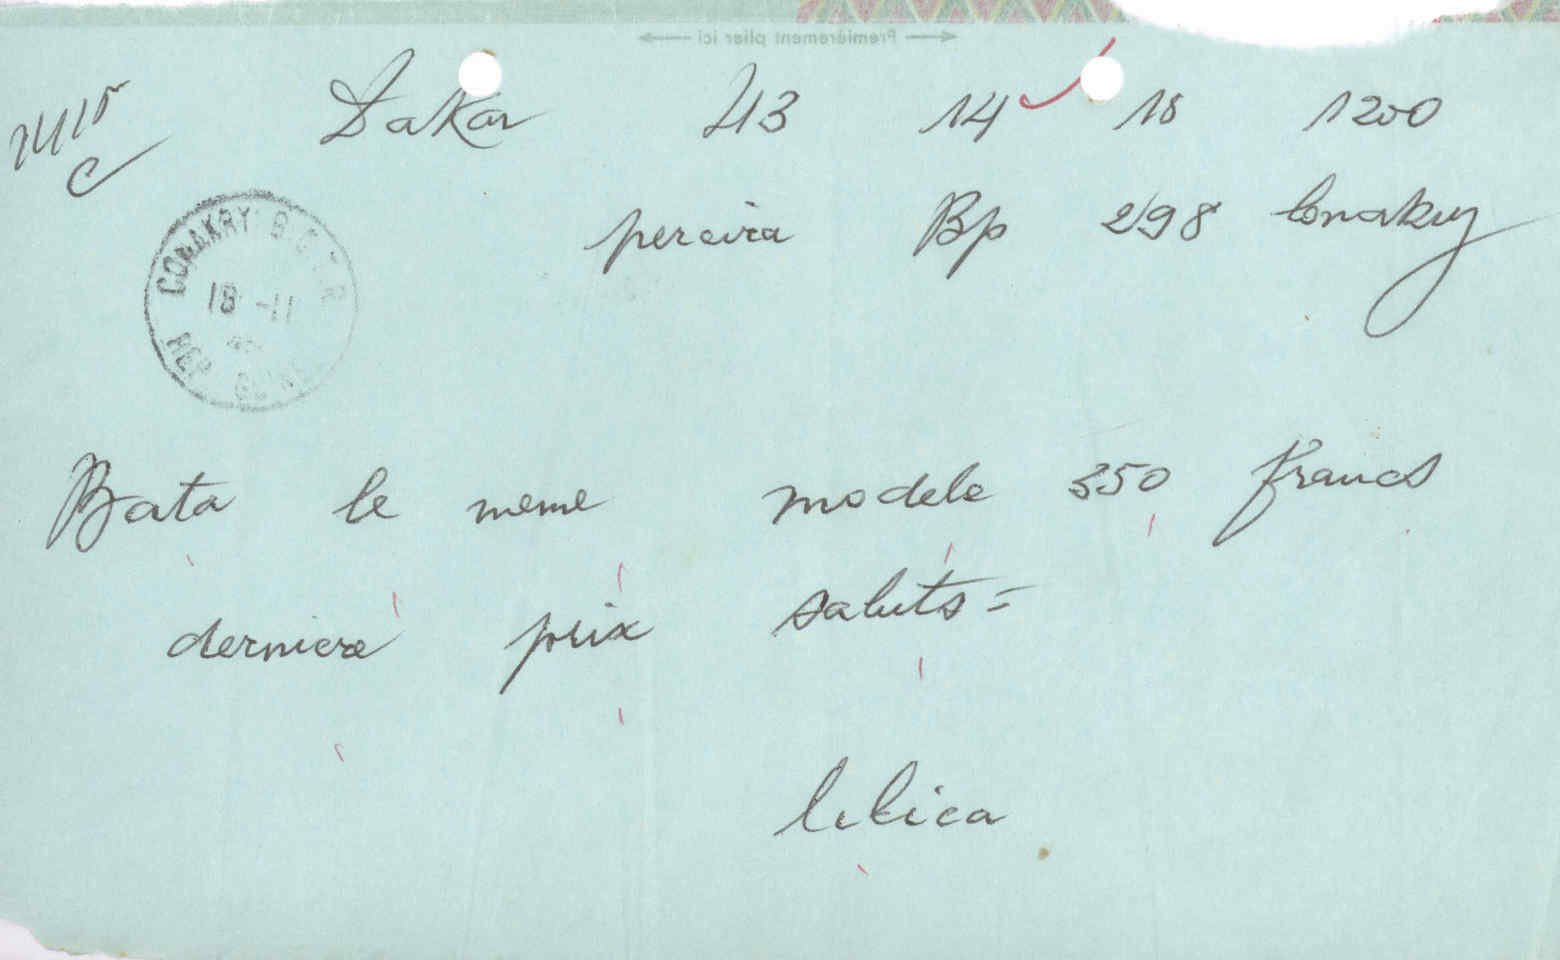 Premièrement plier ici
Dakar 43 14 18 1200
pereira Bp 298 Conakry
CONAKRY
18 -11
REP GUINEE
Bata le meme modele 350 francs
derniere prix saluts =
lilica